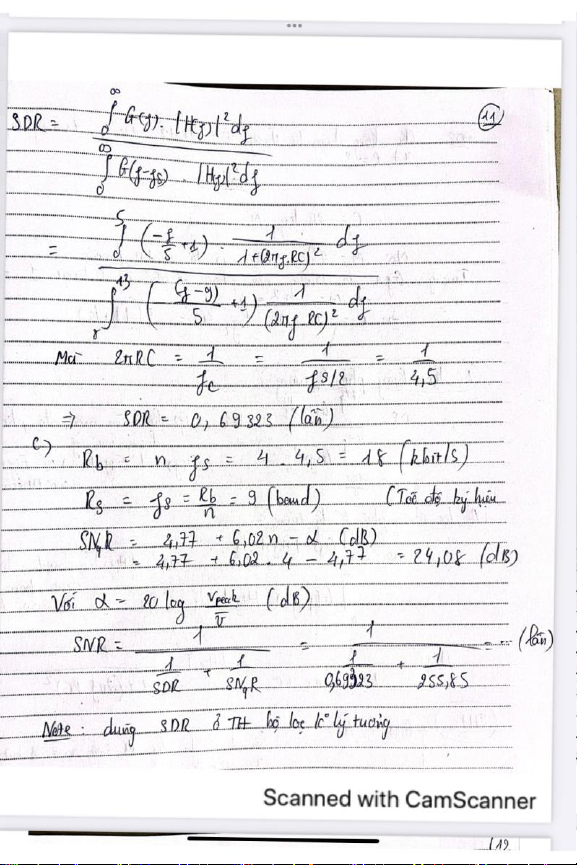 11
SDR = ∫₀^∞ G(f). |H(f)|² df / ∫₀^∞ G(f-fs) . |H(f)|² df
= ∫₀^5 (-f/5 + 1) . 1/(1+(2πf.RC)²) df / ∫^13 (-(f-9)/5 + 1) 1/(2πf.RC)² df
Mà 2πRC = 1/fc = 1/(fs/2) = 1/4,5
⇒ SDR = 0,69323 (lần)
c) Rb = n fs = 4 . 4,5 = 18 (kbit/s)
Rs = fs = Rb/n = 9 (baud) (Tốc độ ký hiệu
SNqR = 4,77 + 6,02n - α (dB)
= 4,77 + 6,02 . 4 - 4,77 = 24,08 (dB)
Với α = 20 log Vpeak/V̄ (dB)
SNR = 1/(1/SDR + 1/SNqR) = 1/(1/0,69323 + 1/255,85) = ... (lần)
Note : dùng SDR ở TH bộ lọc k° lý tưởng
Scanned with CamScanner
12